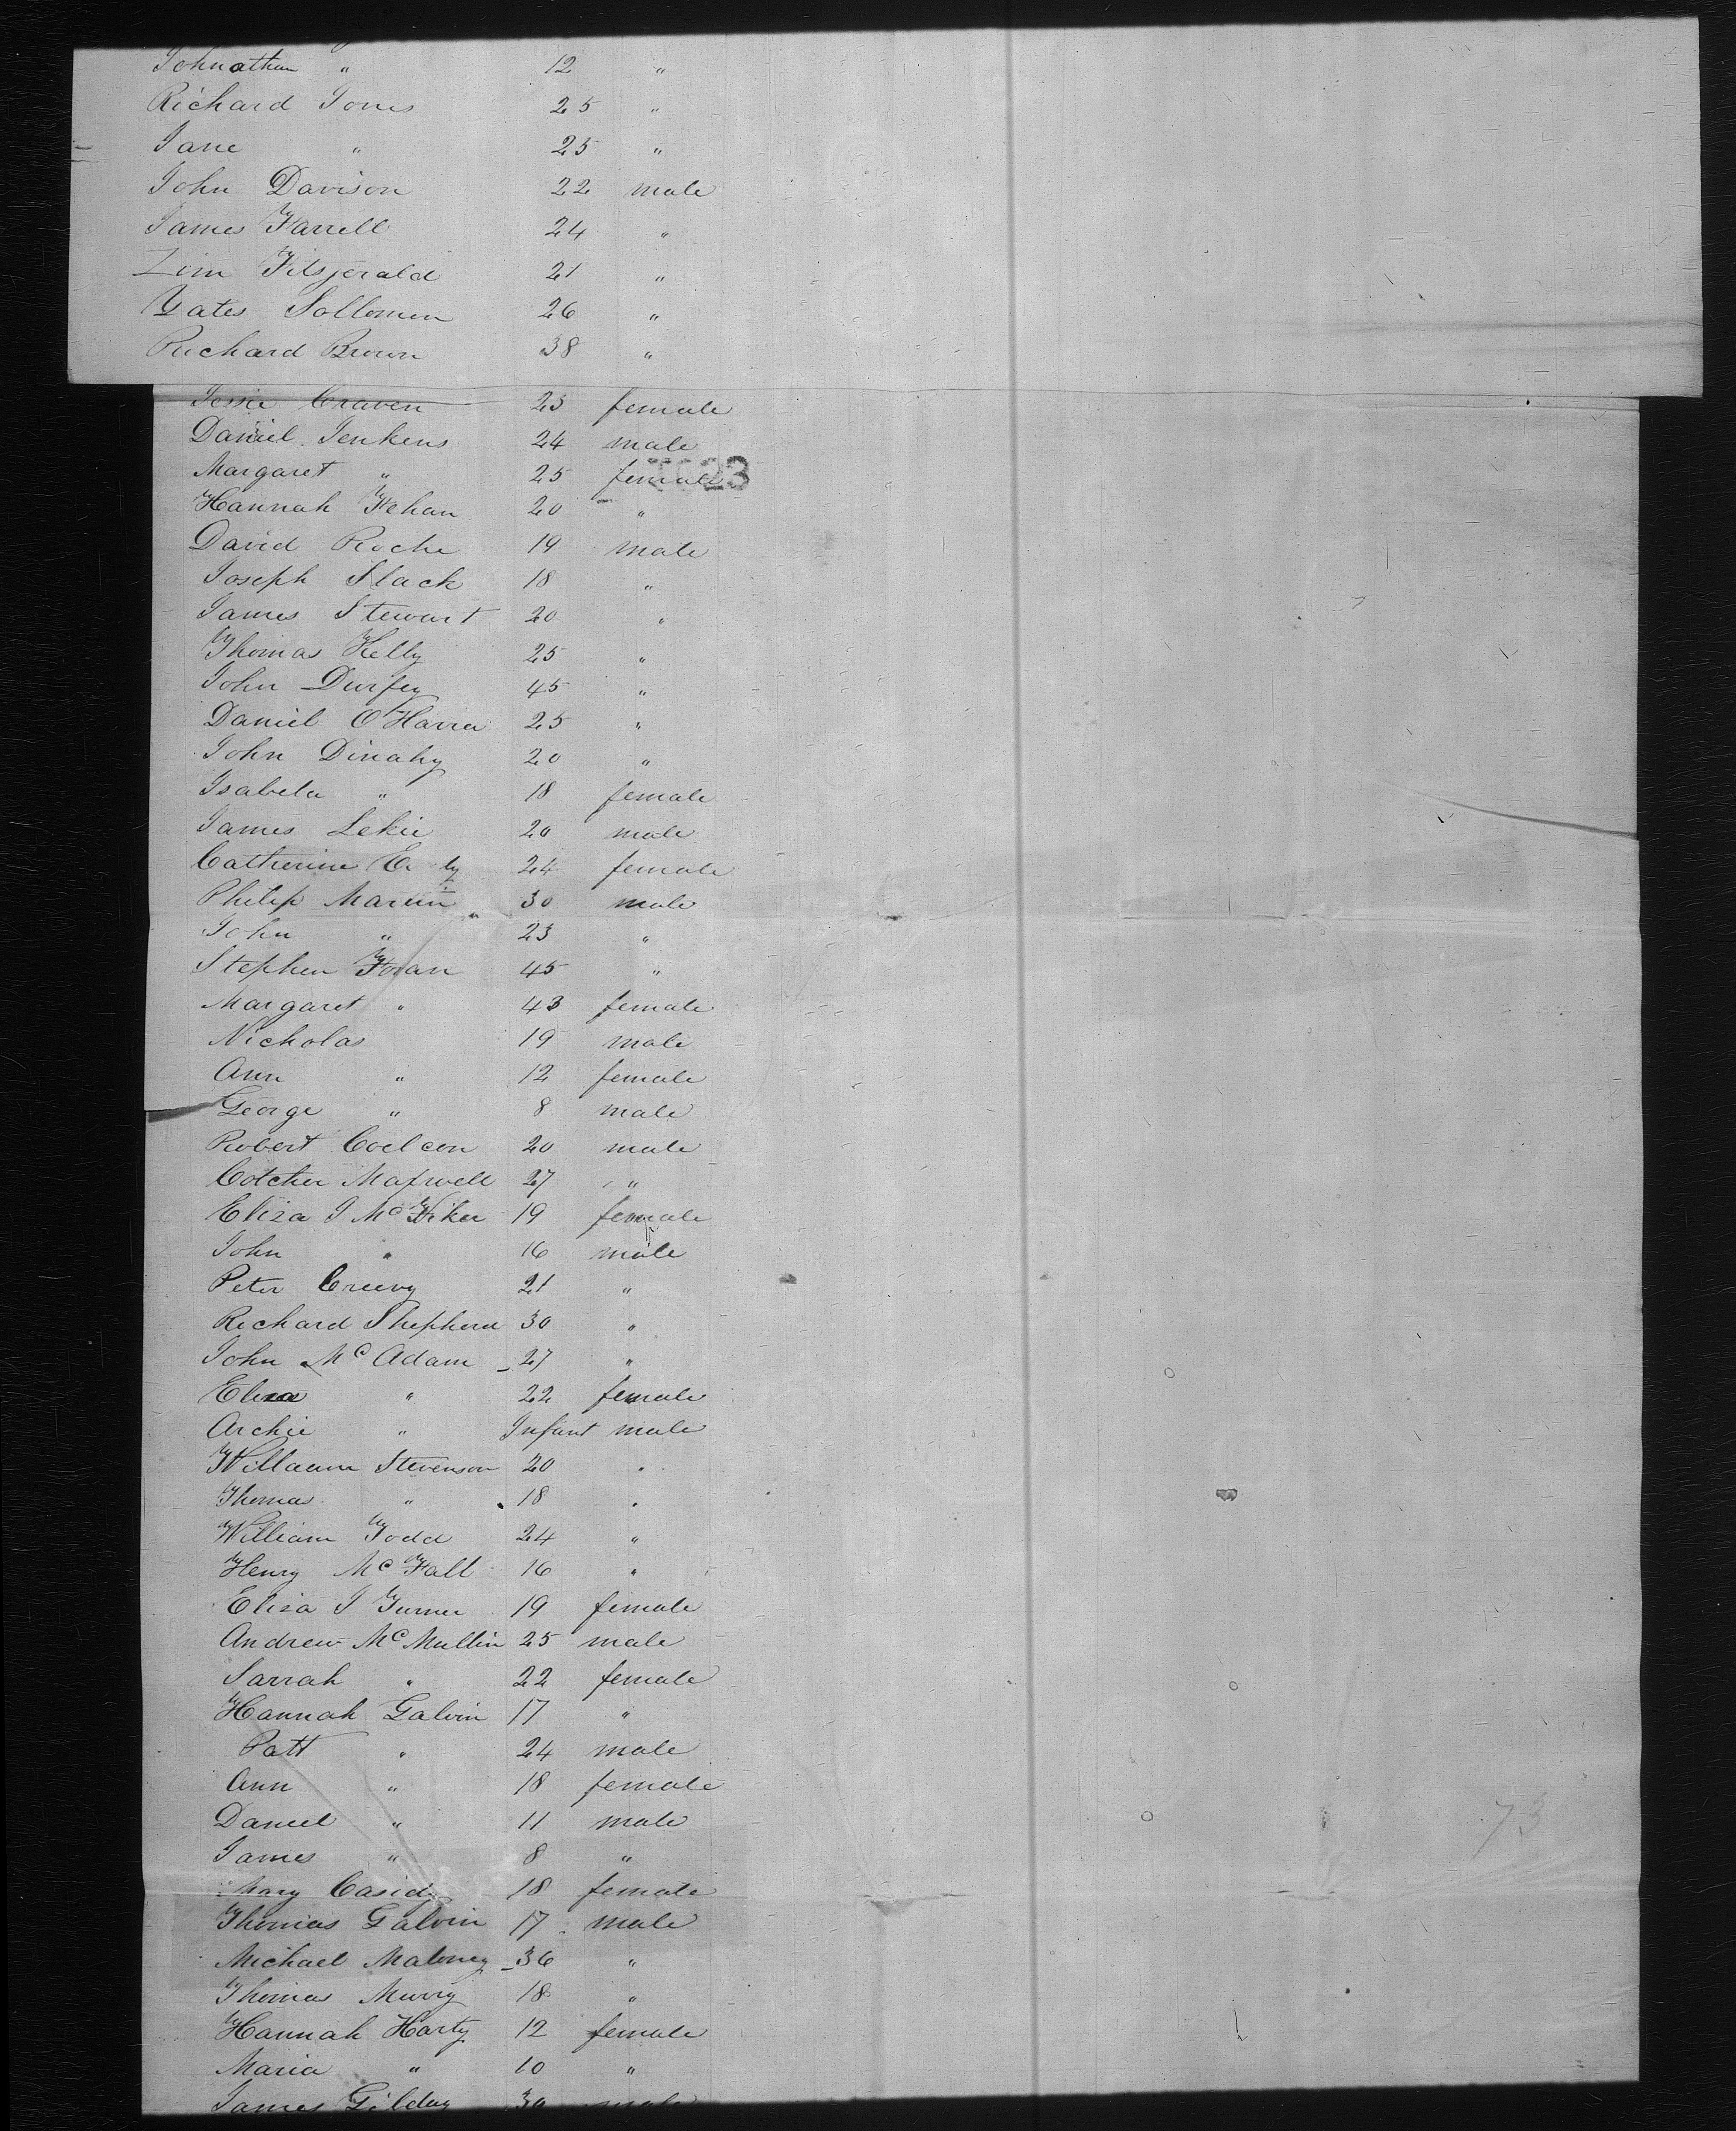 Johnathan " 12 "
Richard Jones 25 "
Jane " 25 "
John Davison 22 male
James Farrell 24 "
Tim Fitsjerald 21 "
Yates Sollomen 26 "
Richard Brown 38 "
Jessie Craven 23 female
Daniel Jenkens 24 male
Margaret " 25 female
Hannah Fehan 20 "
David Roche 19 male
Joseph Slack 18 "
James Stewart 20 "
Thomas Kelly 25 "
John Durfey 45 "
Daniel O'Harra 25 "
John Dinahy 20 "
Isabela " 18 female
James Lekie 20 male
Catherine 24 female
Philip Martin 30 male
John " 23 "
Stephen Foran 45 "
Margaret " 43 female
Nicholas 19 male
Ann " 12 female
George " 8 male
Robert Coelcon 20 male
Cotcher Maxwell 27 "
Eliza J Mc 19 female
John " 16 male
Peter Creevy 21 "
Richard Shepherd 30 "
John Mc Adam 27 "
Eliza " 22 female
Archie " Infant male
Willaam Stevenson 20 "
Thomas " 18 "
William Todd 24 "
Henry Mc Fall 16 "
Eliza J Turner 19 female
Andrew Mc Mullin 25 male
Sarrah " 22 female
Hannah Galvin 17 "
Patt " 24 male
Ann " 18 female
Daniel " 11 male
James " 8 "
Mary Casidy 18 female
Thomas Galvin 17 male
Michael Maloney 36 "
Thomas Murry 18 "
Hannah Harty 12 female
Maria " 10 "
James Gilday 30 male
73